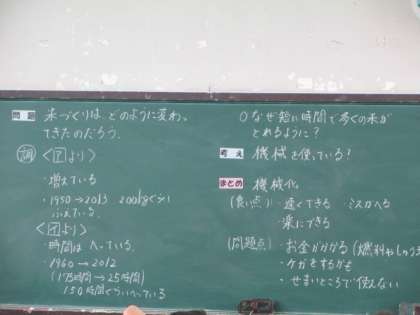 問題 米づくりは、どのように変わっ
てきたのだろう。
調 〈ア より〉
・増えている
・1950→2013 200kgぐらい
ふえている。
〈イ より〉
・時間は へっている。
・1960→2012
(175時間→25時間)
150時間ぐらいへっている
○なぜ短い時間で多くの米が
とれるように?
考え 機械を使っている?
まとめ 機械化
(良い点) ・速くできる ・ミスがへる
・楽にできる
(問題点) ・お金がかかる (燃料やしゅう
・ケガをするかも
・せまいところで使えない